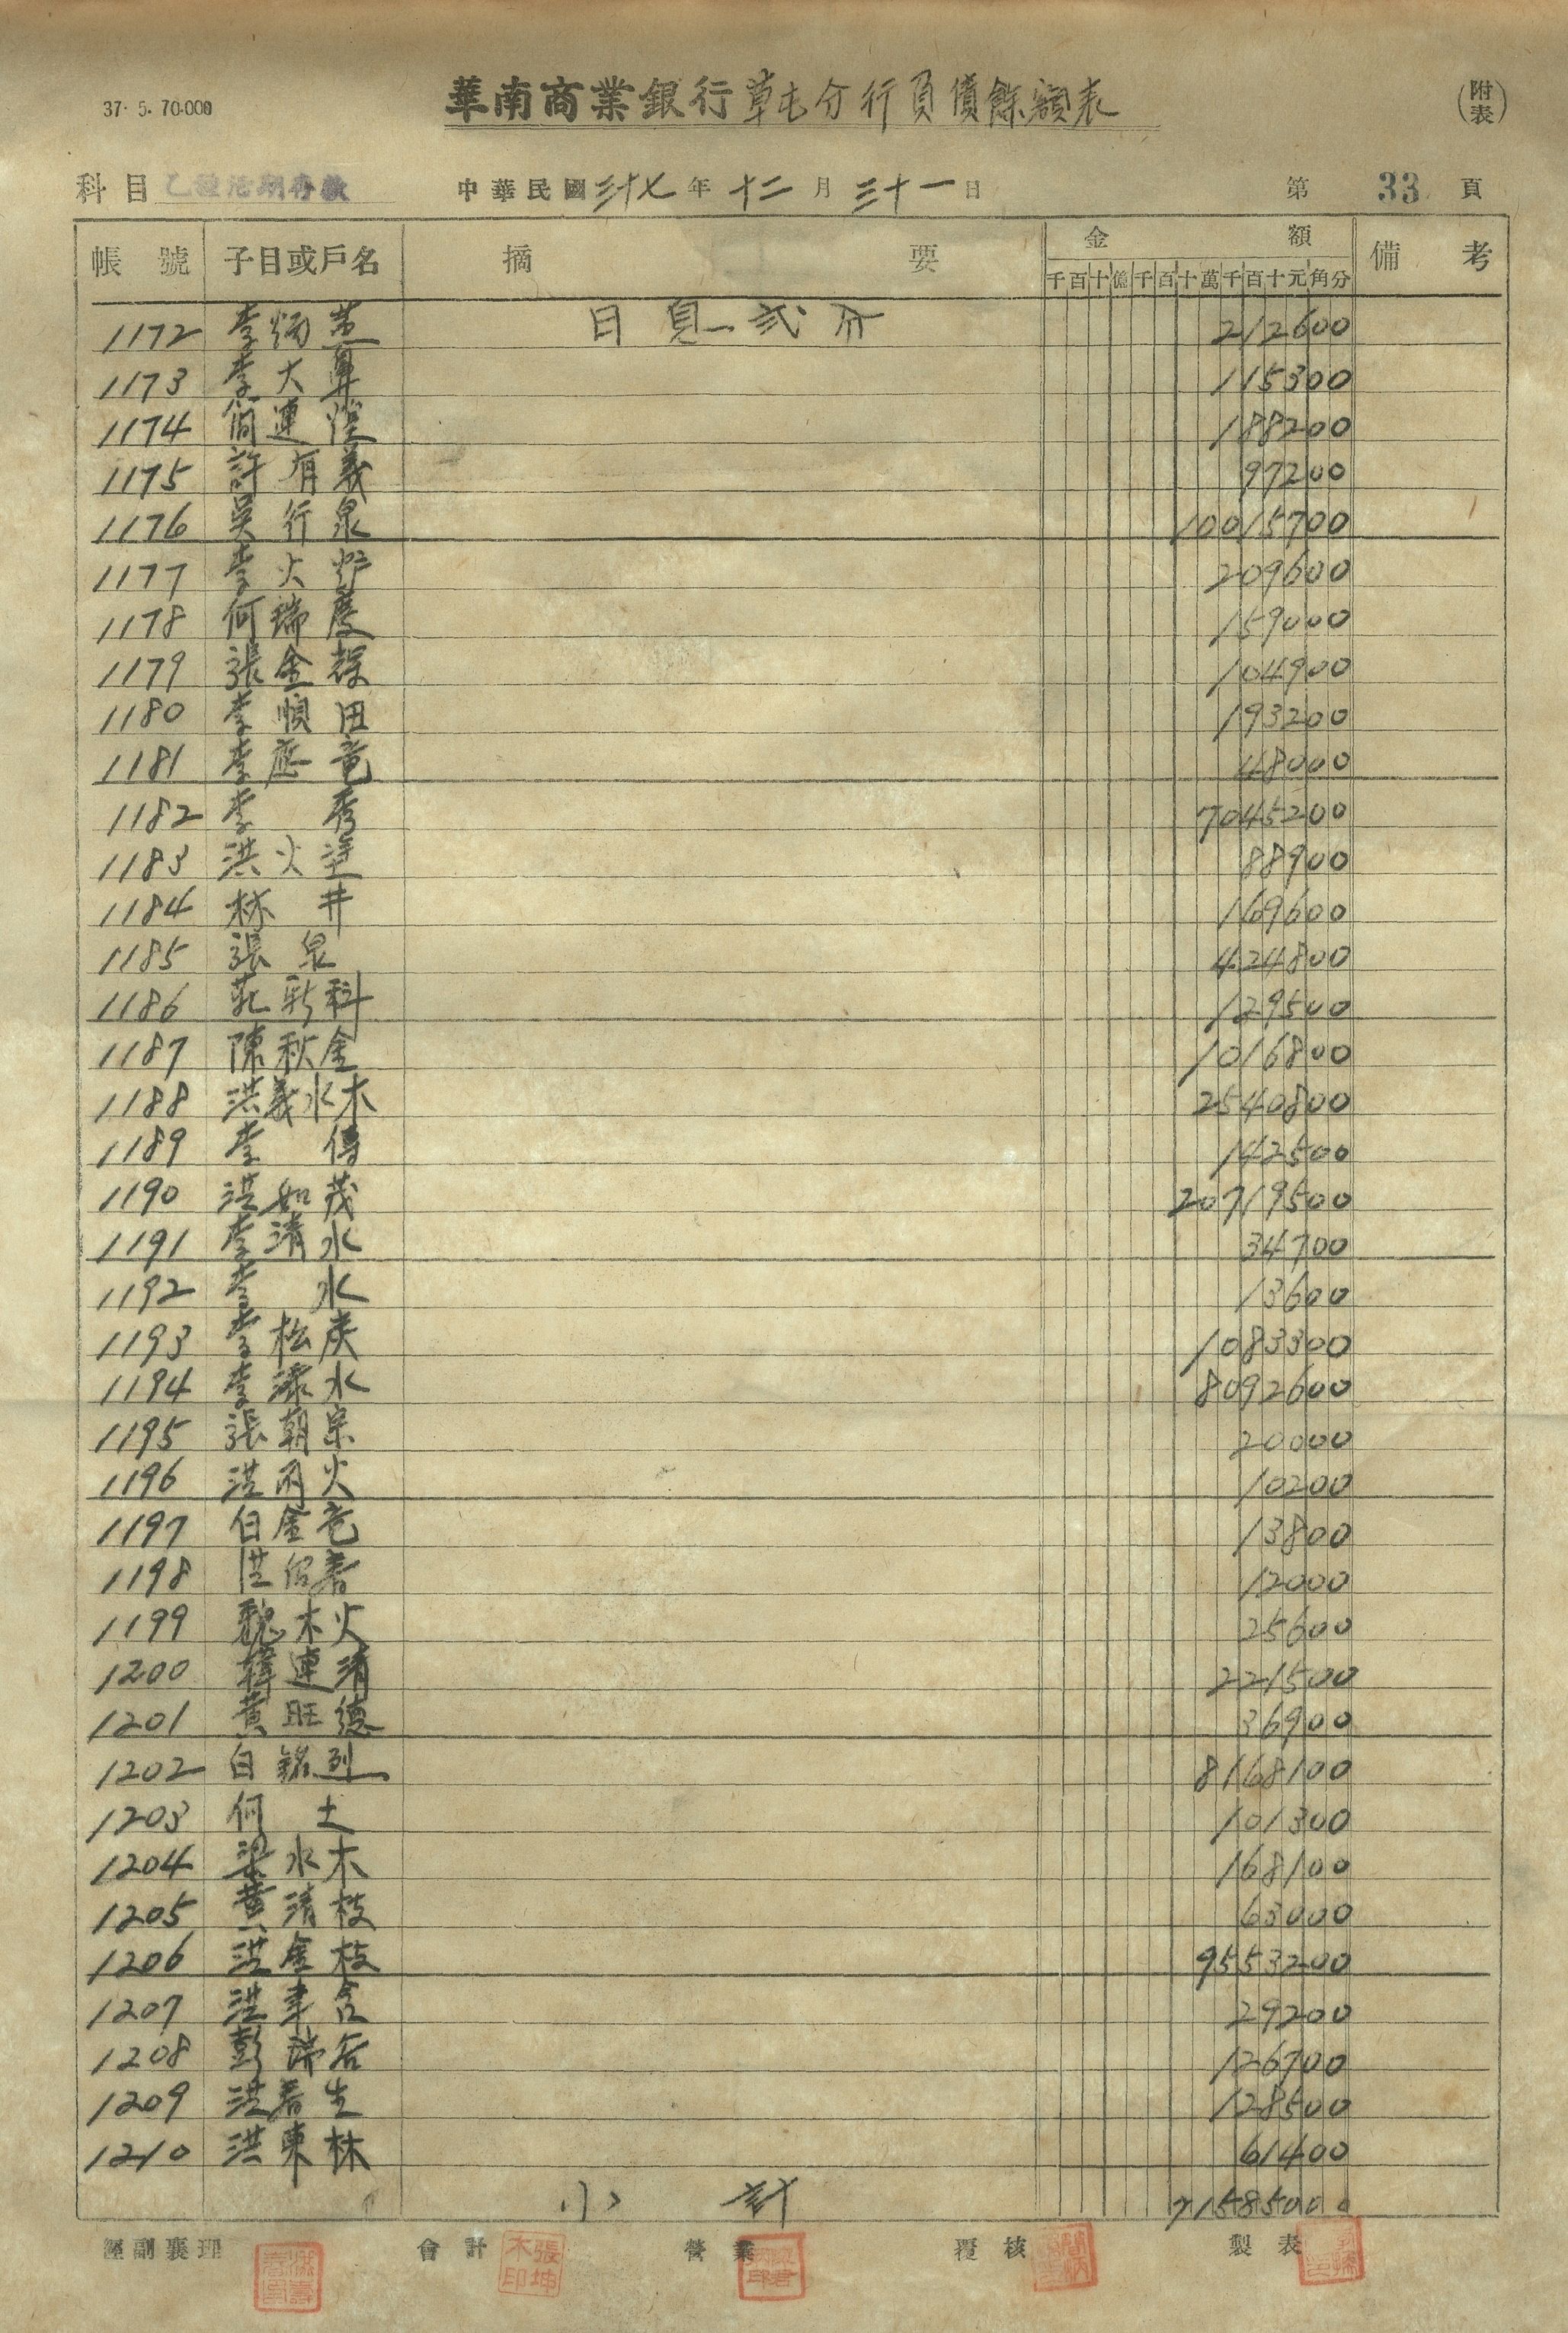 37. 5. 70.000
華南商業銀行草屯分行負債餘額表
(附表)
科目 乙種活期存款 中華民國三十七年十二月三十一日 第 33 頁
帳號 子目或戶名 摘要 金額 備考
千百十億千百十萬千百十元角分
1172 李炳 日息弍分 212600
1173 李大 115300
1174 簡連 188200
1175 許有義 97200
1176 吳行泉 10015700
1177 李火炉 209600
1178 何瑞慶 159000
1179 張金 104900
1180 李順田 193200
1181 李應竜 48000
1182 李秀 7045200
1183 洪火塗 88900
1184 林井 169600
1185 張泉 424800
1186 莊新科 129500
1187 陳秋金 1016800
1188 洪義水木 2540800
1189 李傳 142500
1190 洪如茂 20719500
1191 李清水 34700
1192 李水 13600
1193 李松炭 1083300
1194 李添水 8092600
1195 張朝宗 20000
1196 洪丙火 10200
1197 白金竜 13800
1198 洪 12000
1199 魏木火 25600
1200 韓連清 221500
1201 黃旺德 36900
1202 白銘烈 8168100
1203 何土 101300
1204 梁水木 168100
1205 黃清枝 63000
1206 洪金枝 9553200
1207 洪 29200
1208 彭瑞 126700
1209 洪春生 128500
1210 洪東林 61400
小計 71585000
經副襄理 會計 營業 覆核 製表
張坤木印